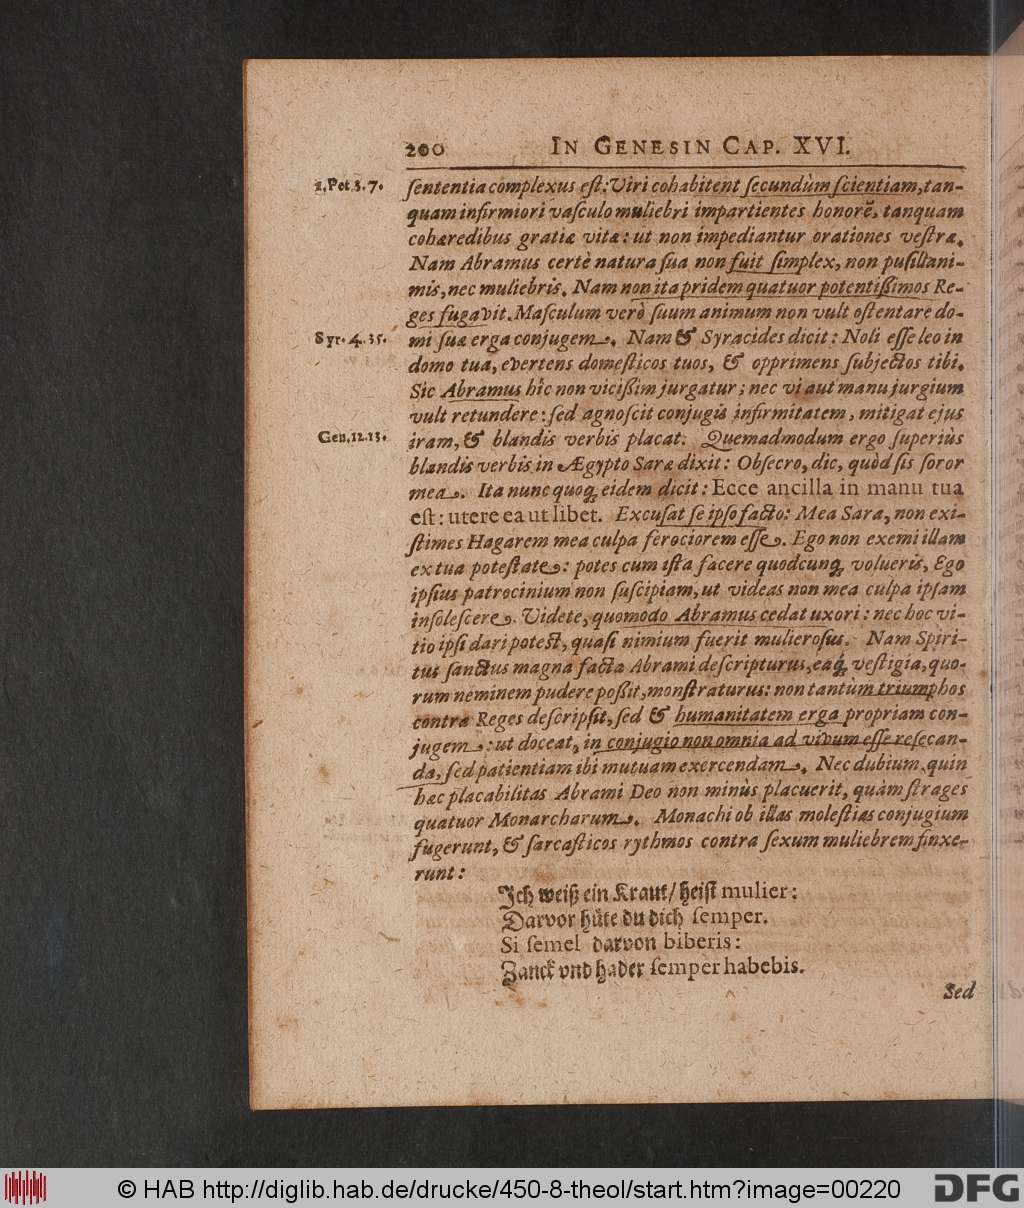 200 IN GENESIN CAP. XVI.
1. Pet. 3. 7. ſententia complexus eſt: Viri cohabitent ſecundùm ſcientiam, tan-
quam infirmiori vaſculo muliebri impartientes honorẽ, tanquam
cohæredibus gratiæ vitæ: ut non impediantur orationes veſtræ.
Nam Abramus certè natura ſua non fuit ſimplex, non puſillani-
mis, nec muliebris. Nam non ita pridem quatuor potentiſſimos Re-
ges fugavit. Maſculum verò ſuum animum non vult oſtentare do-
Syr. 4. 35. mi ſuæ erga conjugem. Nam & Syracides dicit: Noli eſſe leo in
domo tua, evertens domeſticos tuos, & opprimens ſubjectos tibi.
Sic Abramus hîc non viciſſim jurgatur; nec vi aut manu jurgium
vult retundere: ſed agnoſcit conjugis infirmitatem, mitigat ejus
Gen. 12. 13. iram, & blandis verbis placat. Quemadmodum ergo ſuperiùs
blandis verbis in Ægypto Saræ dixit: Obſecro, dic, quòd ſis ſoror
mea. Ita nunc quoq; eidem dicit: Ecce ancilla in manu tua
eſt: utere ea ut libet. Excuſat ſe ipſo facto: Mea Sara, non exi-
ſtimes Hagarem mea culpa ferociorem eſſe. Ego non exemi illam
ex tua poteſtate: potes cum iſta facere quodcunq; volueris, Ego
ipſius patrocinium non ſuſcipiam, ut videas non mea culpa ipſam
inſoleſcere. Videte, quomodo Abramus cedat uxori: nec hoc vi-
tio ipſi dari poteſt, quaſi nimium fuerit mulieroſus. Nam Spiri-
tus ſanctus magna facta Abrami deſcripturus, eaq; veſtigia, quo-
rum neminem pudere poſſit, monſtraturus: non tantùm triumphos
contra Reges deſcripſit, ſed & humanitatem erga propriam con-
jugem: ut doceat, in conjugio non omnia ad vivum eſſe reſecan-
da, ſed patientiam ibi mutuam exercendam. Nec dubium, quin
hæc placabilitas Abrami Deo non minùs placuerit, quàm ſtrages
quatuor Monarcharum. Monachi ob illas moleſtias conjugium
fugerunt, & ſarcaſticos rythmos contra ſexum muliebrem finxe-
runt:
Ich weiß ein Kraut/ heiſt mulier:
Darvor hüte du dich ſemper.
Si ſemel darvon biberis:
Zanck vnd hader ſemper habebis.
Sed
© HAB http://diglib.hab.de/drucke/450-8-theol/start.htm?image=00220
DFG